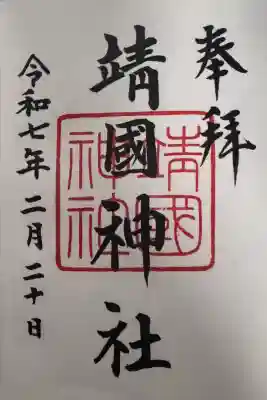 奉拝
靖國神社
靖國
神社
令和七年二月二十日